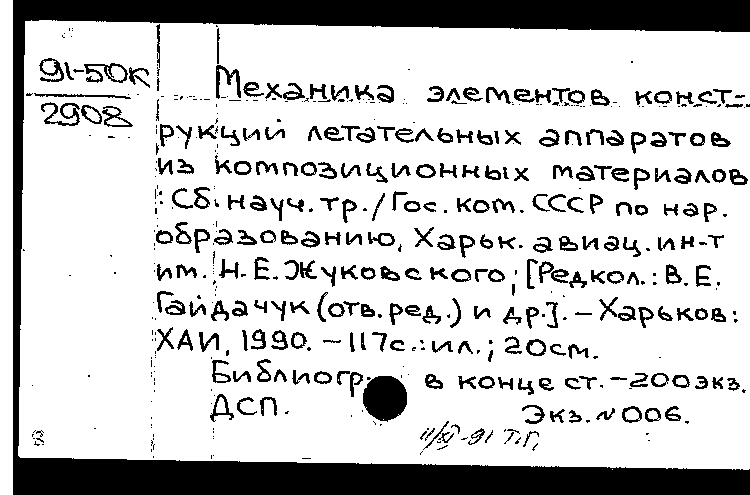 91-50К
2908
Механика элементов конст-
рукций летательных аппаратов
из композиционных материалов
: Сб. науч. тр. / Гос. ком. СССР по нар.
образованию, Харьк. авиац. ин-т
им. Н. Е. Жуковского; [Редкол.: В. Е.
Гайдачук (отв. ред.) и др.]. – Харьков:
ХАИ, 1990. – 117с.: ил.; 20см.
Библиогр. в конце ст. – 200экз.
ДСП. Экз. № 006.
11/XI-91 Т.Г.
8